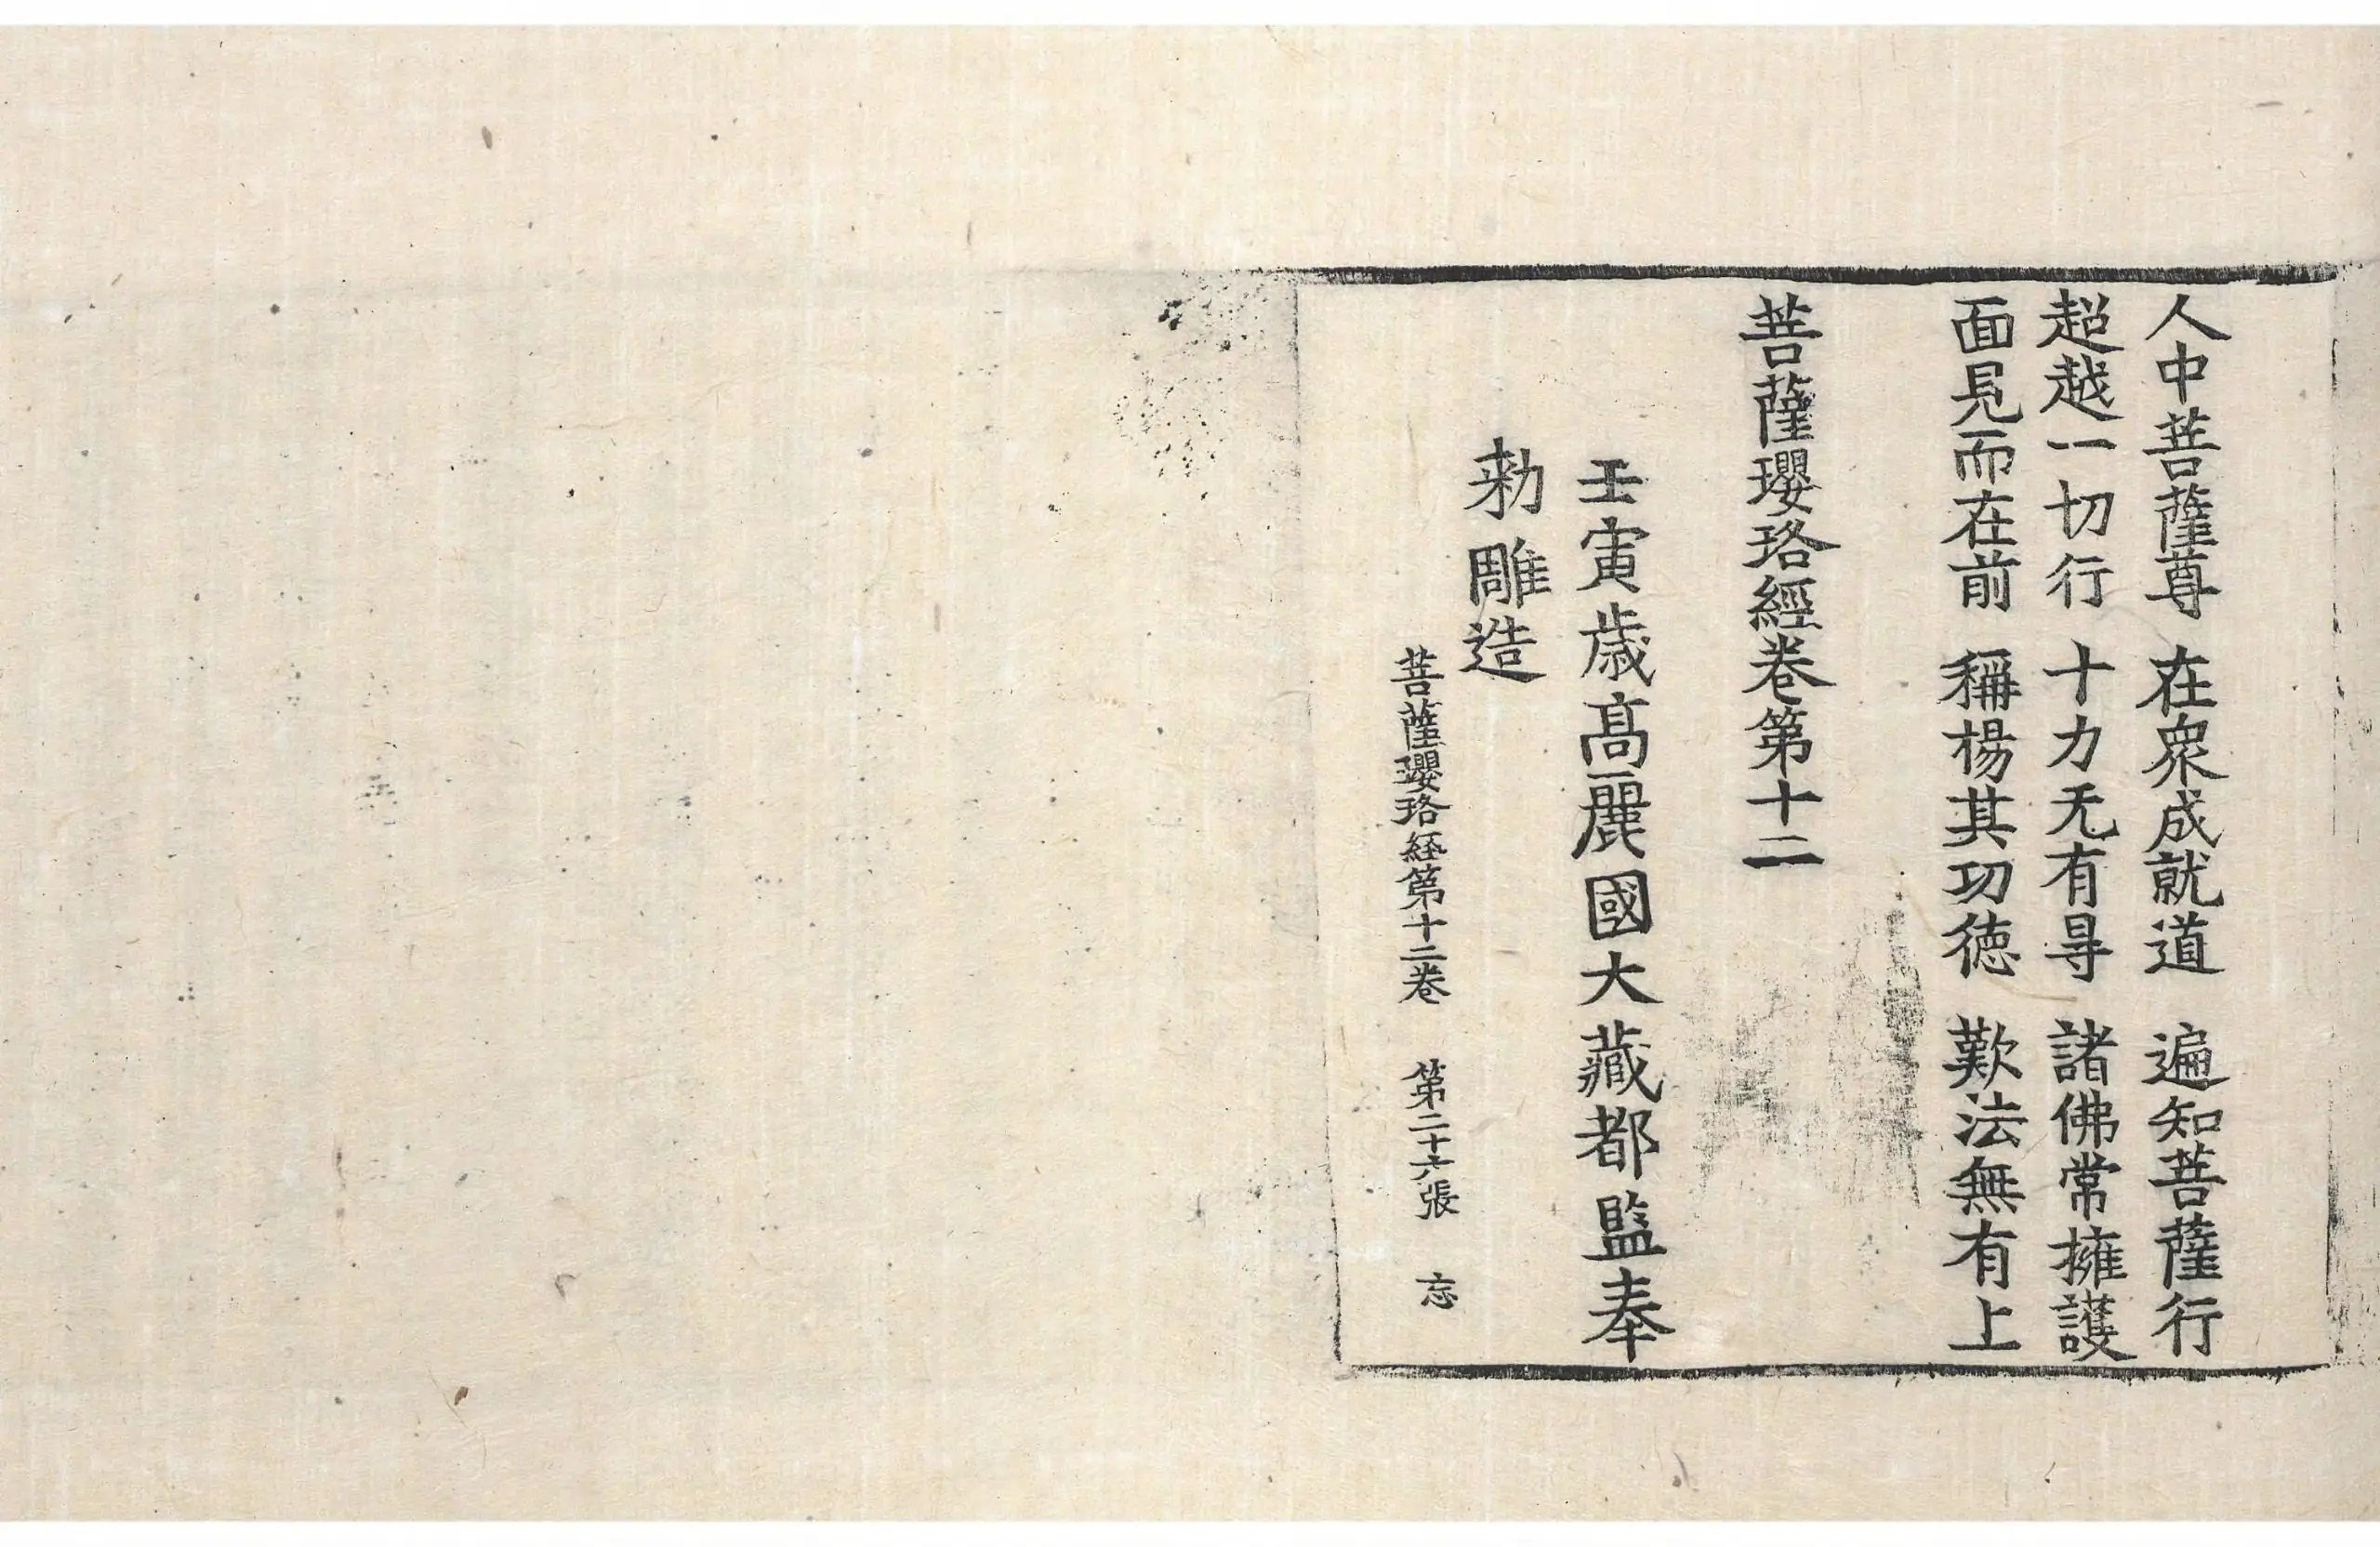 人中菩薩尊 在衆成就道 遍知菩薩行
超越一切行 十力无有㝵 諸佛常擁護
面見而在前 稱楊其功德 歎法無有上
菩薩瓔珞經卷第十二
壬寅歲高麗國大藏都監奉
勅雕造
菩薩瓔珞経第十二卷 第二十六張 忘